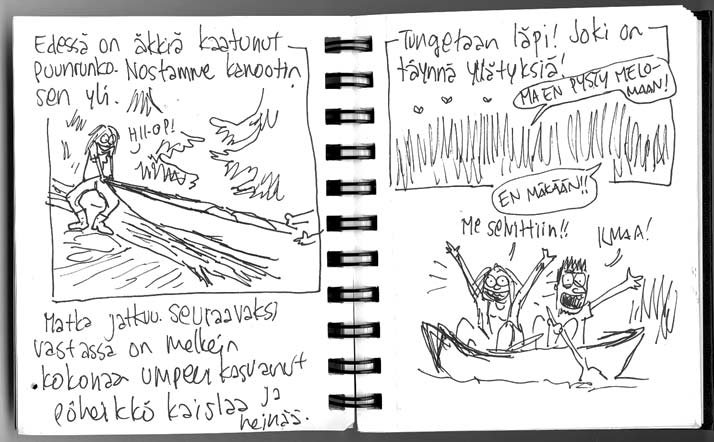 Edessä on äkkiä kaatunut
puunrunko. Nostamme kanootin
sen yli.
HII-OP!
Matka jatkuu. Seuraavaksi
vastassa on melkein
kokonaan umpeen kasvanut
pöheikkö kaislaa ja
heinää.
Tungetaan läpi! Joki on
täynnä yllätyksiä!
MÄ EN PYSTY MELO-
MAAN!
EN MÄKÄÄN!!
ME SELVITTIIN!!
ILMAA!